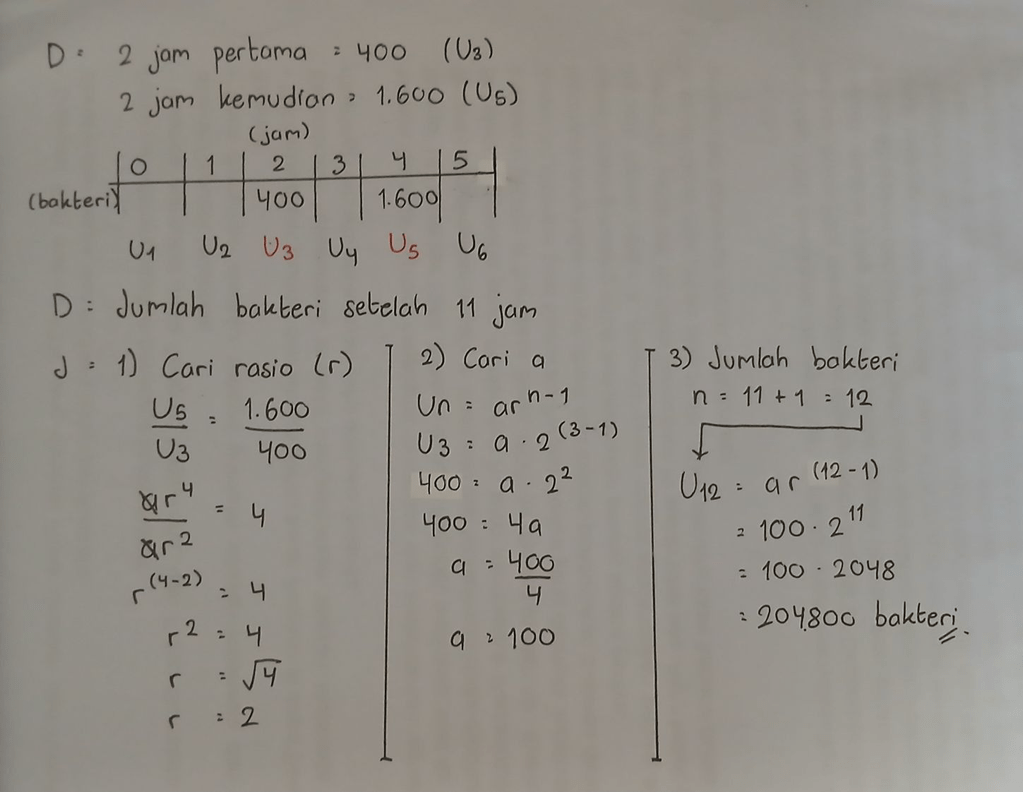 D = 2 jam pertama = 400 (U3)
2 jam kemudian = 1.600 (U5)
(jam)
0 1 2 3 4 5
(bakteri) 400 1.600
U1 U2 U3 U4 U5 U6
D = Jumlah bakteri setelah 11 jam
J = 1) Cari rasio (r)
U5/U3 = 1.600/400
ar⁴/ar² = 4
r⁽⁴⁻²⁾ = 4
r² = 4
r = √4
r = 2
2) Cari a
Un = ar^(n-1)
U3 = a · 2^(3-1)
400 = a · 2²
400 = 4a
a = 400/4
a = 100
3) Jumlah bakteri
n = 11 + 1 = 12
U12 = ar^(12-1)
= 100 · 2¹¹
= 100 · 2048
= 204.800 bakteri.